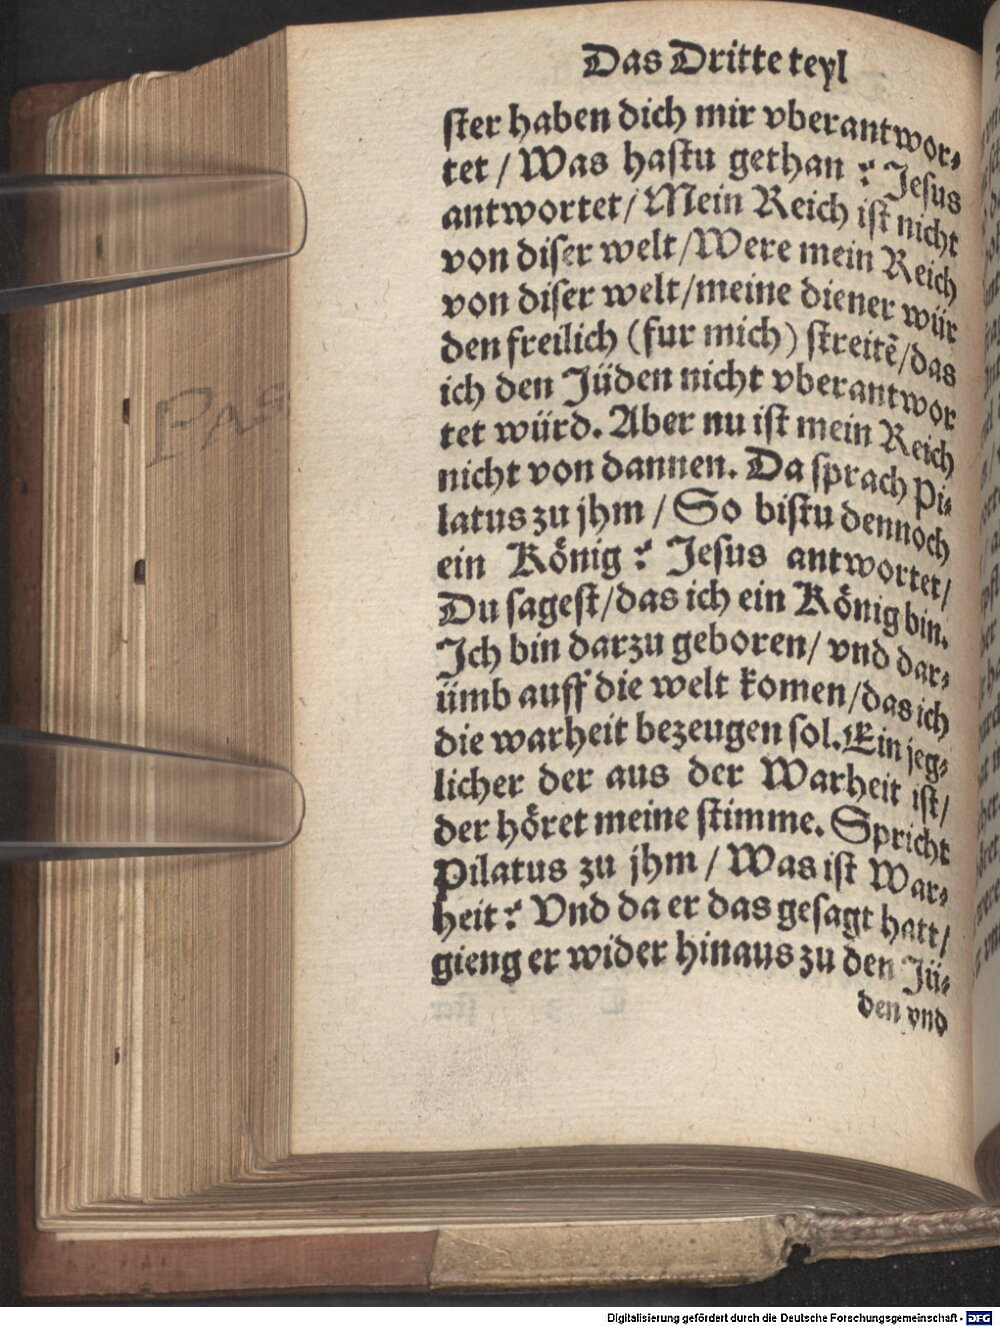 Das Dritte teyl
ster haben dich mir vberantwor⸗
tet / Was hastu gethan ? Jesus
antwortet / Mein Reich ist nicht
von diser welt / Were mein Reich
von diser welt / meine diener wür
den freilich (fur mich) streitẽ / das
ich den Jüden nicht vberantwor
tet würd. Aber nu ist mein Reich
nicht von dannen. Da sprach Pi⸗
latus zu jhm / So bistu dennoch
ein König ? Jesus antwortet /
Du sagest / das ich ein König bin.
Ich bin darzu geboren / vnd dar⸗
ümb auff die welt komen / das ich
die warheit bezeugen sol. Ein jeg⸗
licher der aus der Warheit ist /
der höret meine stimme. Spricht
Pilatus zu jhm / Was ist War⸗
heit ? Vnd da er das gesagt hatt /
gieng er wider hinaus zu den Jü⸗
den vnd
PAS
Digitalisierung gefördert durch die Deutsche Forschungsgemeinschaft - DFG